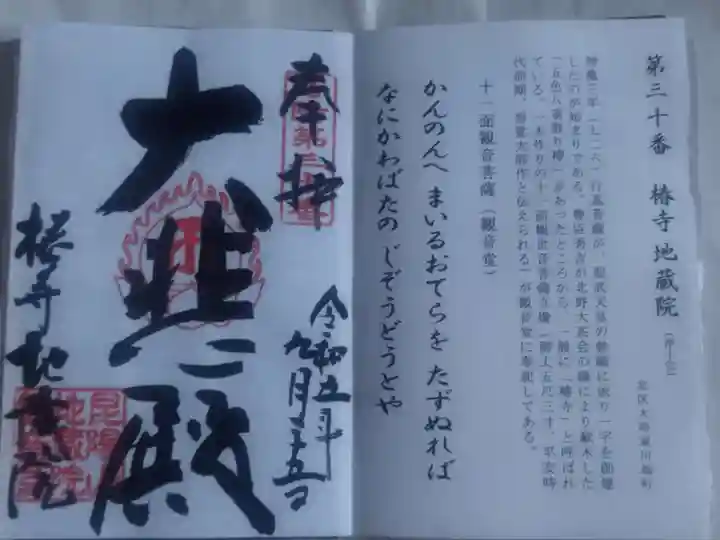 第三十番 椿寺 地蔵院（浄土宗）
北区大将軍川端町
神亀三年（七二六）行基菩薩が、聖武天皇の勅願に依り一宇を創建
したのが始まりである。豊臣秀吉が北野大茶会の縁により献木した
「五色八重散り椿」があったところから、一般に「椿寺」と呼ばれ
ている。一木作りの十一面観世音菩薩立像（御丈五尺三寸、平安時
代前期、慈覚大師作と伝えられる）が観音堂に奉祀してある。
十一面観音菩薩（観音堂）
かんのんへ まいるおてらを たずぬれば
なにかわばたの じぞうどうとや
奉拝
令和五年
九月十五日
大悲殿
椿寺地蔵院
昆陽山
地蔵院